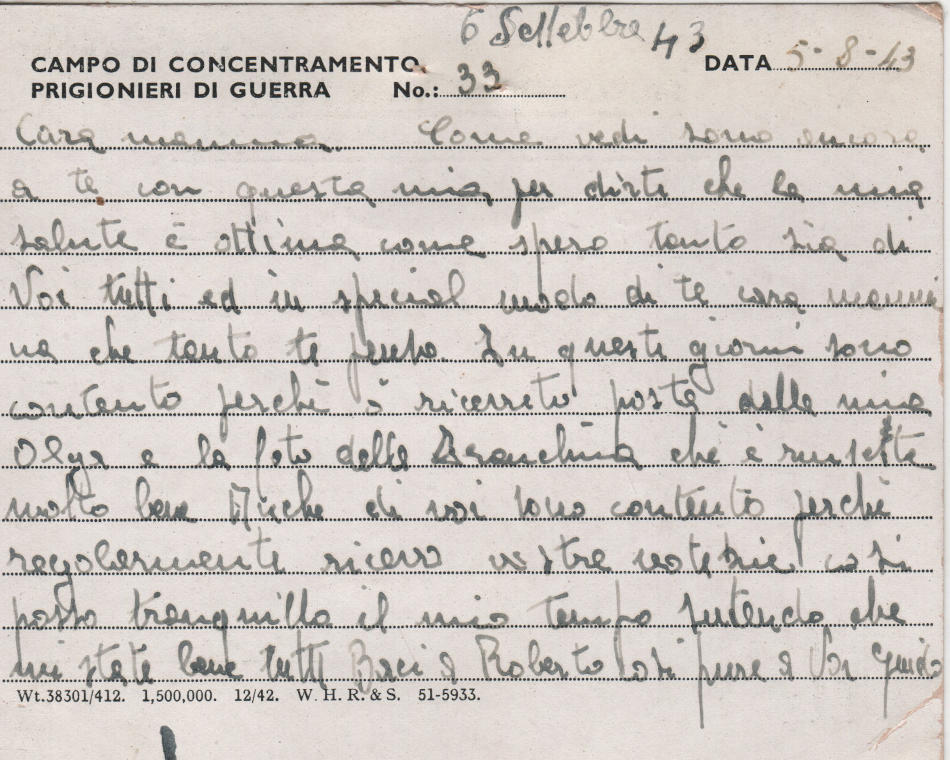 6 Settebre 43
CAMPO DI CONCENTRAMENTO DATA 5-8-43
PRIGIONIERI DI GUERRA No.: 33
Cara mamma. Come vedi sono ancora
a te con questa mia per dirti che la mia
salute è ottima come spero tanto sia di
Voi tutti ed in special modo di te cara mammi
na che tanto te penso. In questi giorni sono
contento perchè ò ricevuto posta della mia
Olga e la foto della Branchina che è riuscita
molto bene Anche di voi sono contento perchè
regolarmente ricevo vostre notizie così
posso tranquillo il mio tempo sutendo che
mi state bene tutti Baci a Roberto così pure a Voi Guido
Wt.38301/412. 1,500,000. 12/42. W. H. R. & S. 51-5933.